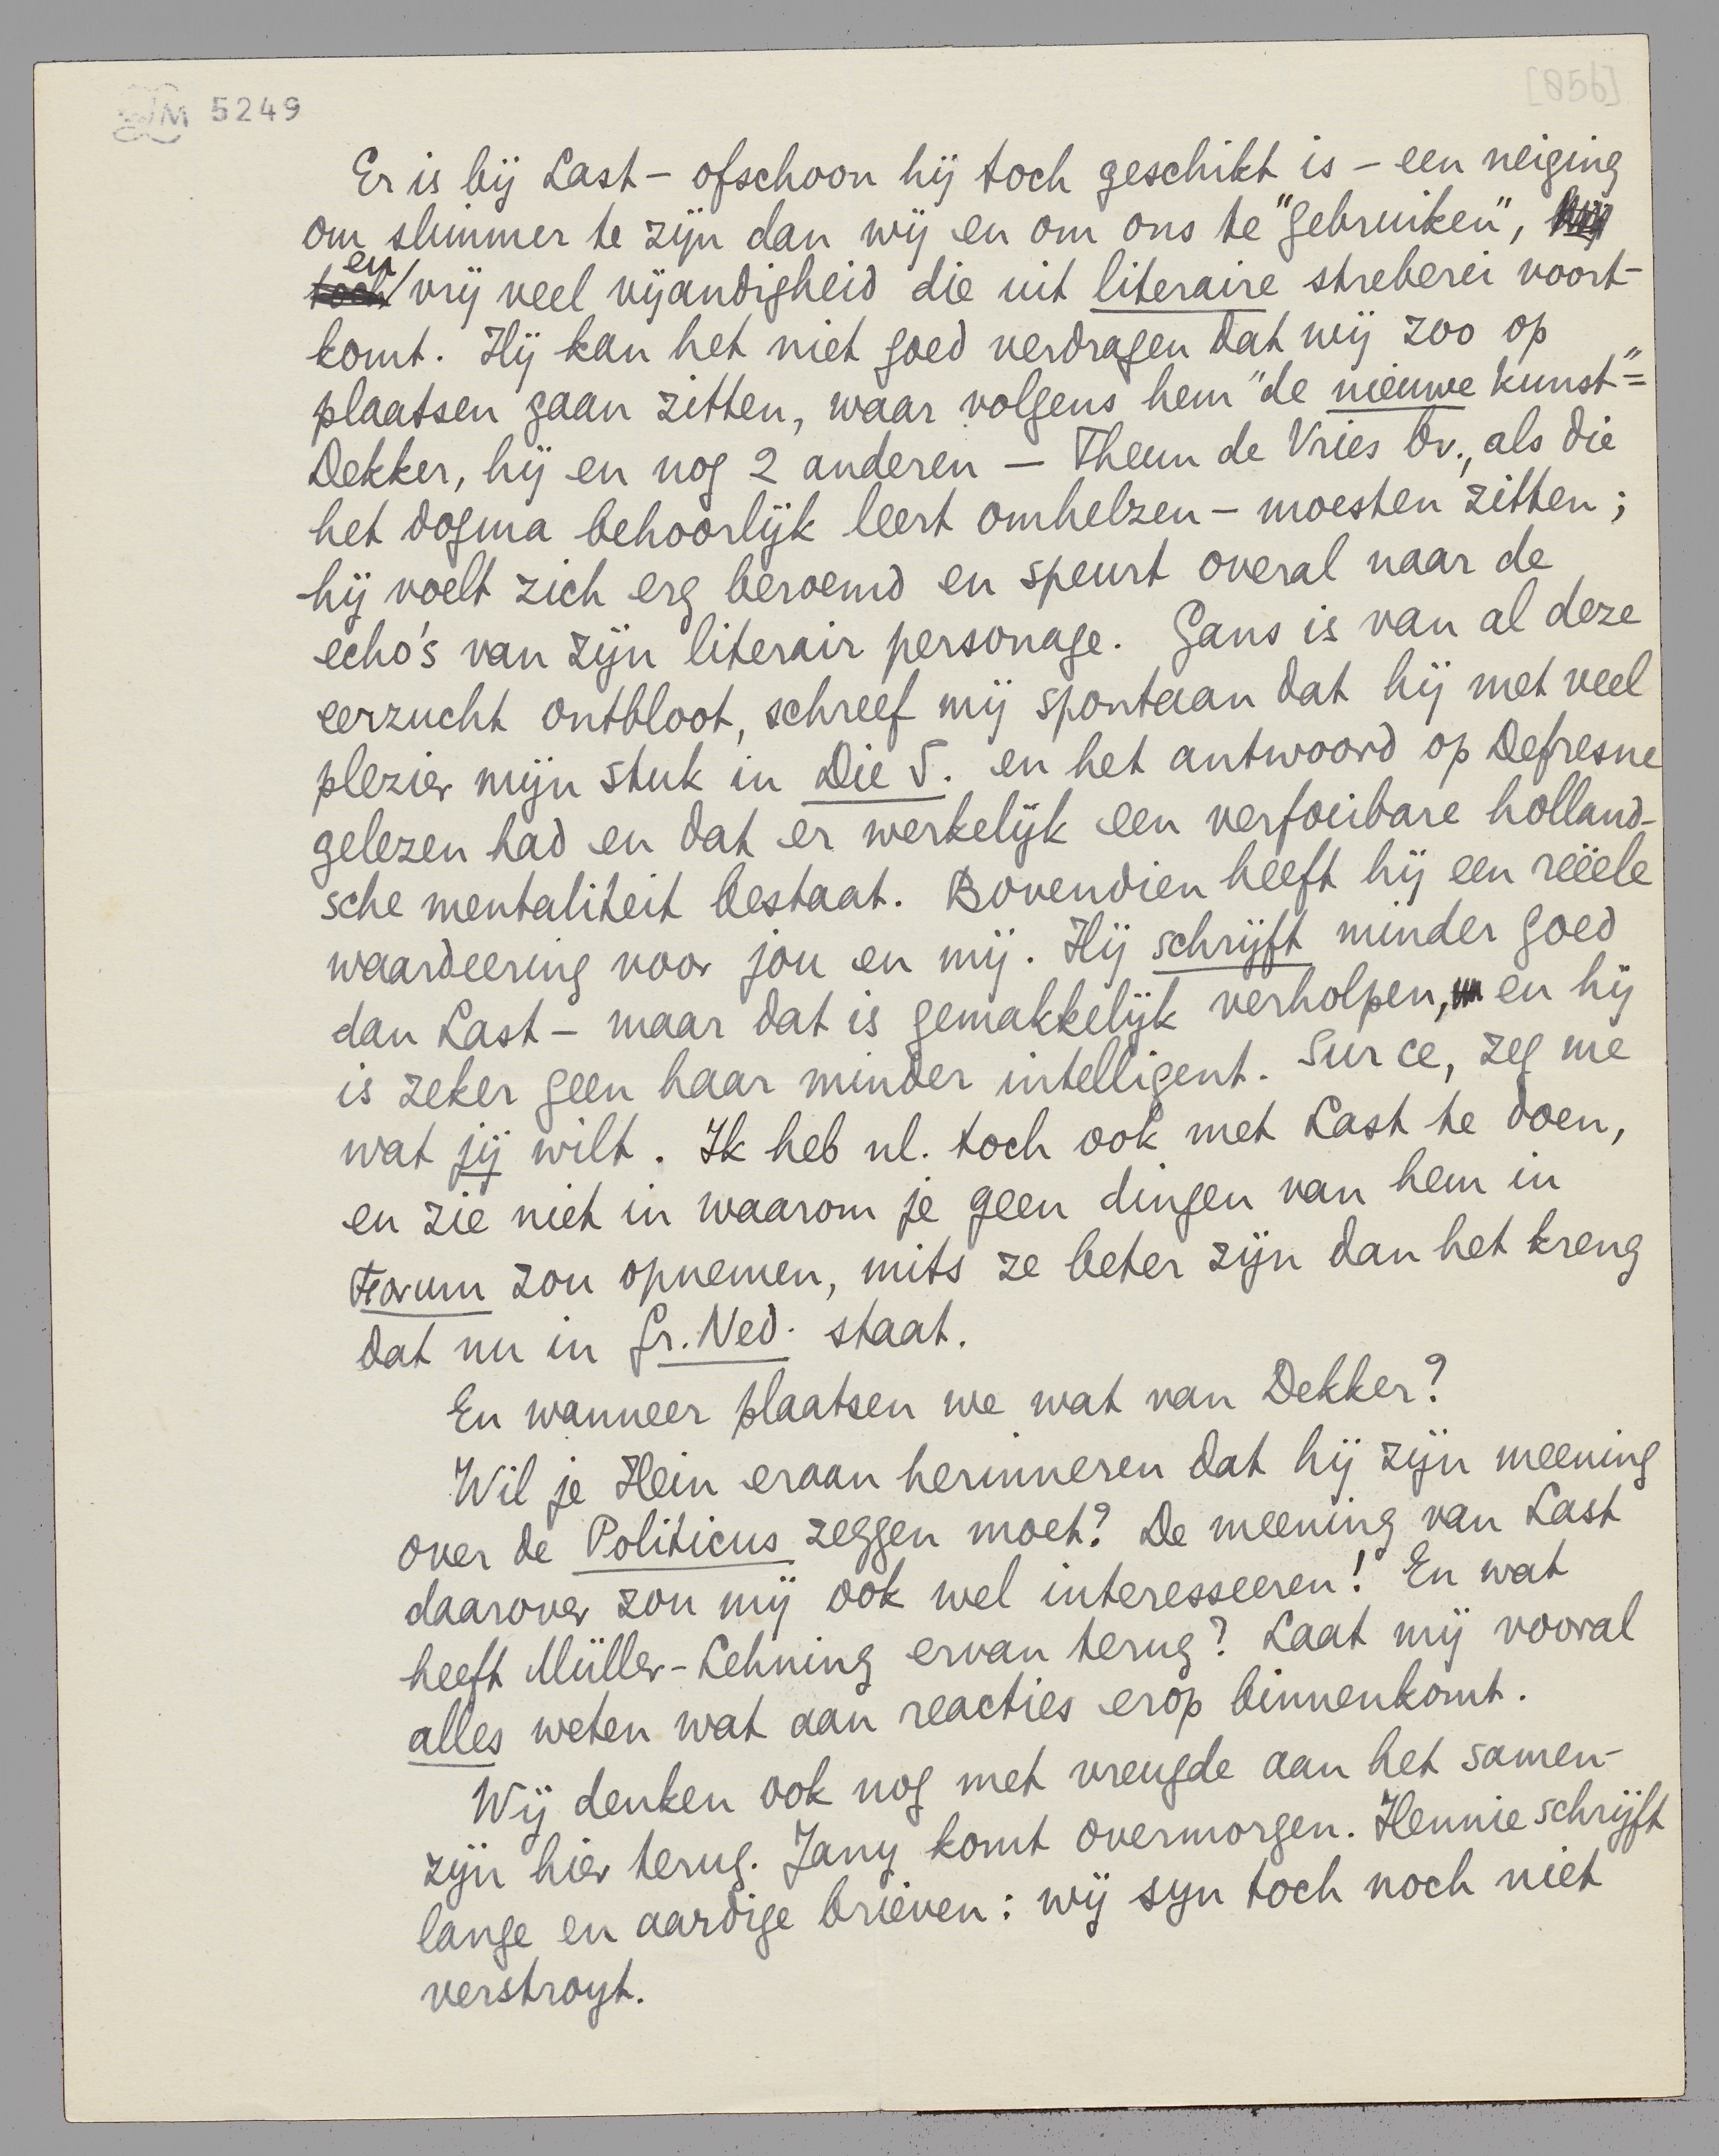 LM 5249
[856]
Er is bij Last – ofschoon hij toch geschikt is – een neiging
om slimmer te zijn dan wij en om ons te "gebruiken",
en
toch vrij veel vijandigheid die uit literaire streberei voort-
komt. Hij kan het niet goed verdragen dat wij zoo op
plaatsen gaan zitten, waar volgens hem "de nieuwe kunst" =
Dekker, hij en nog 2 anderen – Theun de Vries bv., als die
het dogma behoorlijk leert omhelzen – moesten zitten;
hij voelt zich erg beroemd en speurt overal naar de
echo's van zijn literair personage. Gans is van al deze
eerzucht ontbloot, schreef mij spontaan dat hij met veel
plezier mijn stuk in Die S. en het antwoord op Defresne
gelezen had en dat er werkelijk een verfoeibare holland-
sche mentaliteit bestaat. Bovendien heeft hij een reëele
waardeering voor jou en mij. Hij schrijft minder goed
dan Last – maar dat is gemakkelijk verholpen, en hij
is zeker geen haar minder intelligent. Sur ce, zeg me
wat jij wilt. Ik heb nl. toch ook met Last te doen,
en zie niet in waarom je geen dingen van hem in
Forum zou opnemen, mits ze beter zijn dan het kreng
dat nu in Gr. Ned. staat.
En wanneer plaatsen we wat van Dekker?
Wil je Hein eraan herinneren dat hij zijn meening
over de Politicus zeggen moet? De meening van Last
daarover zou mij ook wel interesseeren! En wat
heeft Müller-Lehning ervan terug? Laat mij vooral
alles weten wat aan reacties erop binnenkomt.
Wij denken ook nog met vreugde aan het samen-
zijn hier terug. Jany komt overmorgen. Hennie schrijft
lange en aardige brieven: wij syn toch noch niet
verstroyt.